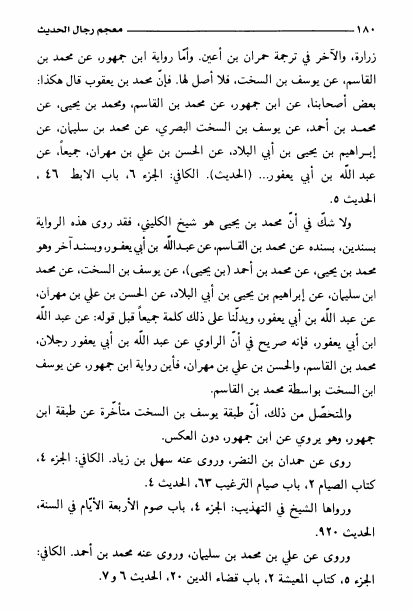 ١٨٠ معجم رجال الحديث
زرارة، والآخر في ترجمة حمران بن أعين. وأمّا رواية ابن جمهور، عن محمد بن
القاسم، عن يوسف بن السخت، فلا أصل لها. فإنّ محمد بن يعقوب قال هكذا:
بعض أصحابنا، عن ابن جمهور، عن محمد بن القاسم، ومحمد بن يحيى، عن
محمد بن أحمد، عن يوسف بن السخت البصري، عن محمد بن سليمان، عن
إبراهيم بن يحيى بن أبي البلاد، عن الحسن بن علي بن مهران، جميعاً، عن
عبد اللّه بن أبي يعفور... (الحديث). الكافي: الجزء ٦، باب الابط ٤٦ ،
الحديث ٥.
ولا شكّ في أنّ محمد بن يحيى هو شيخ الكليني، فقد روى هذه الرواية
بسندين، بسنده عن محمد بن القاسم، عن عبداللّه بن أبي يعفور، وبسند آخر وهو
محمد بن يحيى، عن محمد بن أحمد (بن يحيى)، عن يوسف بن السخت، عن محمد
ابن سليمان، عن إبراهيم بن يحيى بن أبي البلاد، عن الحسن بن علي بن مهران،
عن عبد اللّه بن أبي يعفور، ويدلّنا على ذلك كلمة جميعاً قبل قوله: عن عبد اللّه
ابن أبي يعفور، فإنه صريح في أنّ الراوي عن عبد اللّه بن أبي يعفور رجلان،
محمد بن القاسم، والحسن بن علي بن مهران، فأين رواية ابن جمهور، عن يوسف
ابن السخت بواسطة محمد بن القاسم.
والمتحصّل من ذلك، أنّ طبقة يوسف بن السخت متأخّرة عن طبقة ابن
جمهور، وهو يروي عن ابن جمهور، دون العكس.
روى عن حمدان بن النضر، وروى عنه سهل بن زياد. الكافي: الجزء ٤،
كتاب الصيام ٢، باب صيام الترغيب ٦٣، الحديث ٤.
ورواها الشيخ في التهذيب: الجزء ٤، باب صوم الأربعة الأيّام في السنة،
الحديث ٩٢٠.
وروى عن علي بن محمد بن سليمان، وروى عنه محمد بن أحمد. الكافي:
الجزء ٥، كتاب المعيشة ٢، باب قضاء الدين ٢٠، الحديث ٦ و٧.